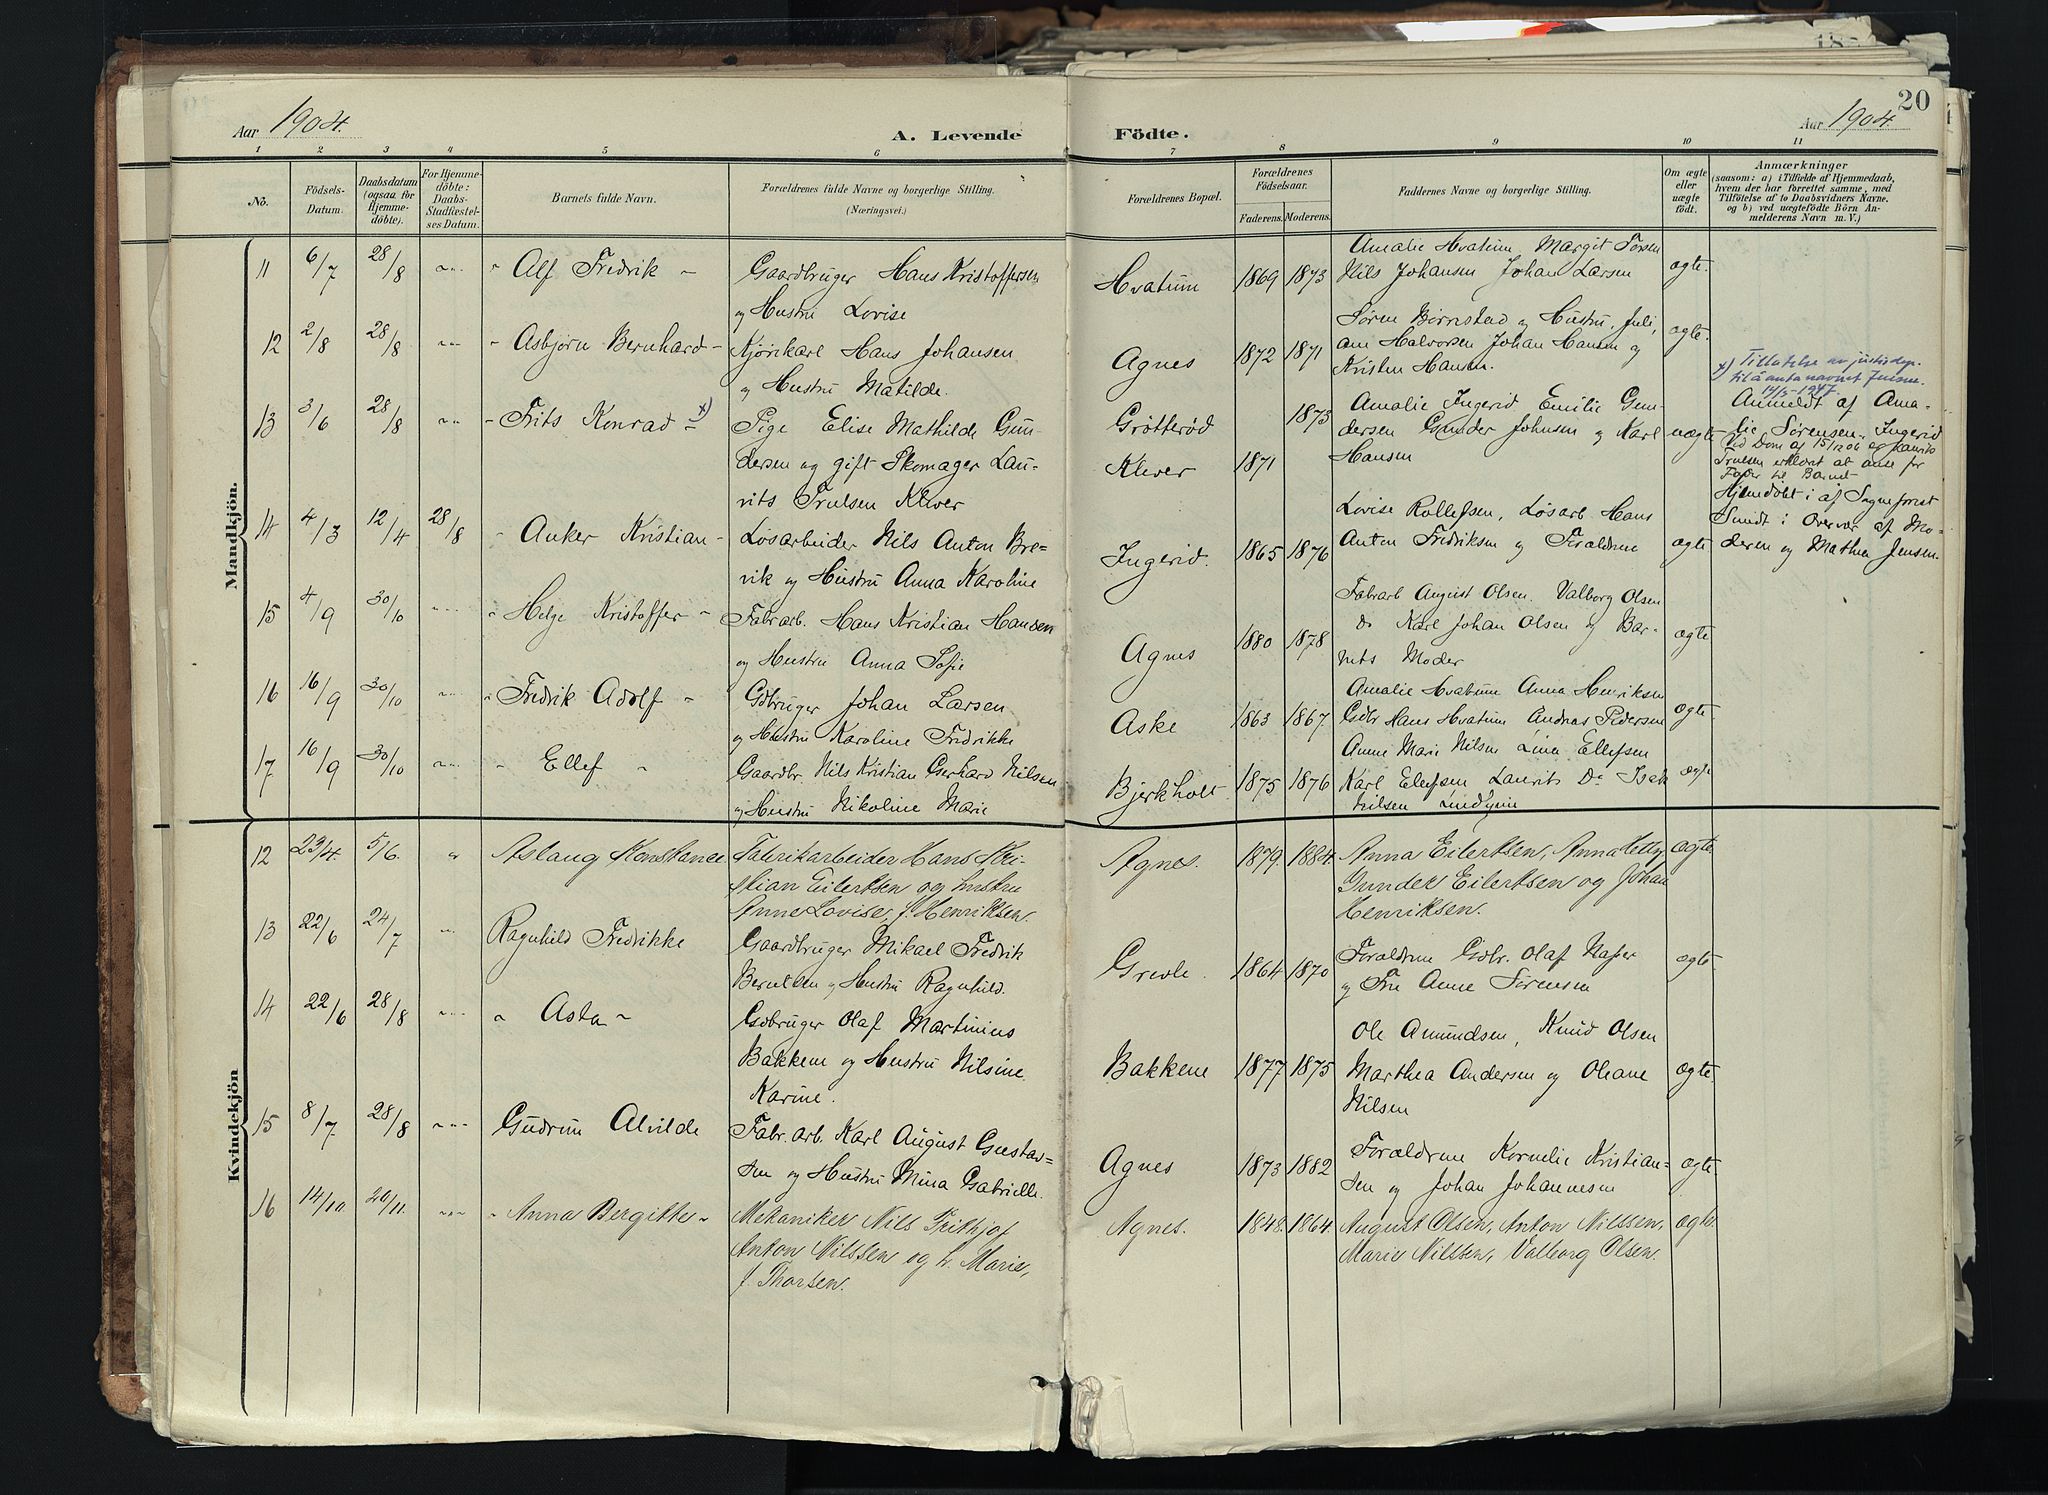 20
Aar 1904.
A. Levende Födte.
Aar 1904
1 2 3 4 5 6 7 8 9 10 11
No.
Födsels-Datum.
Daabsdatum (ogsaa for Hjemmedöbte).
For Hjemmedöbte: Daabs-Stadfæstelses Datum.
Barnets fulde Navn.
Forældrenes fulde Navne og borgerlige Stilling.
(Næringsvei.)
Forældrenes Bopæl.
Forældrenes Födselsaar.
Faderens. Moderens.
Faddernes Navne og borgerlige Stilling.
Om ægte eller uægte födt.
Anmærkninger
(saasom: a) i Tilfælde af Hjemmedaab, hvem der har forrettet samme, med Tilföielse af to Daabsvidners Navne, og b) ved uægtefödte Börn Anmelderens Navn m. V.)
Mandkjön.
11 6/7 28/8 Alf Fredrik
Gaardbruger Hans Kristoffersen
og Hustru Lovise
Hvatum 1869 1873
Amalie Hvatum, Margit Torsen
Nils Johansen Johan Larsen
ægte.
12 2/8 28/8 Asbjørn Bernhard
Kjørikarl Hans Johansen
og Hustru Matilde.
Agnes 1872 1871
Søren Børrestad og Hustru, Juli,
ane Halvorsen Johan Hansen og
Kristen Hansen.
ægte.
13 3/6 28/8 Frits Konrad x)
Pige Elise Mathilde Gun-
dersen og gift Skomager Lau-
rits Trulsen Klever
Grøtterød 1873
Klever 1871
Amalie Ingerid Emilie Gun-
dersen Gunder Johnsen og Karl
Hansen
uægte
x) Tillatelse av justisdep.
til å anta navnet
14/5-1947.
Anmeldt af Ama-
lie Sørensen Ingerid
Ved Dom af 15/12 06 er Laurits
Trulsen erklært at anse for
Fader til Barnet
14 4/3 12/4 28/8 Anker Kristian
Løsarbeider Nils Anton Bre-
vik og Hustru Anna Karoline
Ingerid. 1865 1876
Lovise Rollefsen, Løsarb. Hans
Anton Fredriksen og Forældrene
ægte
Hjemdøbt i af Sogneprest
Smidt i Overvær af Mo-
deren og Mathea Jensen.
15 4/9 30/10 Helge Kristoffer
Fabrarb. Hans Kristian Hansen
og Hustru Anna Sofie
Agnes 1880 1878
Fabrarb August Olsen. Valborg Olsen
Do Karl Johan Olsen og Bar-
nets Moder
ægte
16 16/9 30/10 Fredrik Adolf
Gdbruger Johan Larsen
og Hustru Karoline Fredrikke
Aske 1863 1867
Amalie Hvatum Anna Henriksen
Gdbr Hans Hvatum Andreas Pedersen
ægte.
17 16/9 30/10 Ellef
Gaardbr Nils Kristian Gerhard Nilsen
og Hustru Nikoline Marie
Bjerkholt 1875 1876
Anne Marie Nilsen Lina Ellefsen
Karl Ellefsen Laurits Do
Nilsen
ægte
Kvindekjön
12 23/4. 5/6. Aslaug Konstance
Fabrikarbeider Hans Kri-
stian Eilertsen og hustru
Anne Lovise, f. Henriksen.
Agnes. 1879. 1884.
Anna Eilertsen, Anna Hetty,
Gunder Eilertsen og Johan
Henriksen.
ægte
13 22/6 24/7 Ragnhild Fredrikke
Gaardbruger Mikael Fredrik
Berntsen og Hustru Ragnhild.
Grevle. 1864 1870
Forældrene Gdbr. Olaf Napser
og Fru Anne Sørensen
ægte
14 22/6 28/8 Asta
Gdbruger Olaf Martinius
Bakkene og Hustru Nilsine
Karine.
Bakkene 1877 1875
Ole Amundsen, Knud Olsen
Marthea Andersen og Oleane
Nilsen
ægte.
15 8/7 28/8 Gudrun Alvilde
Fabr. arb. Karl August Gustav-
sen og Hustru Mina Gabrielle.
Agnes 1873 1882
Forældrene Kornelie Kristian-
sen og Johan Johannesen
ægte.
16 14/10 20/11. Anna Bergitte
Mekaniker Nils Frithjof
Anton Nilssen og h. Marie,
f. Thorsen.
Agnes. 1848. 1864.
August Olsen, Anton Nilssen,
Marie Nilssen, Valborg Olsen.
ægte.